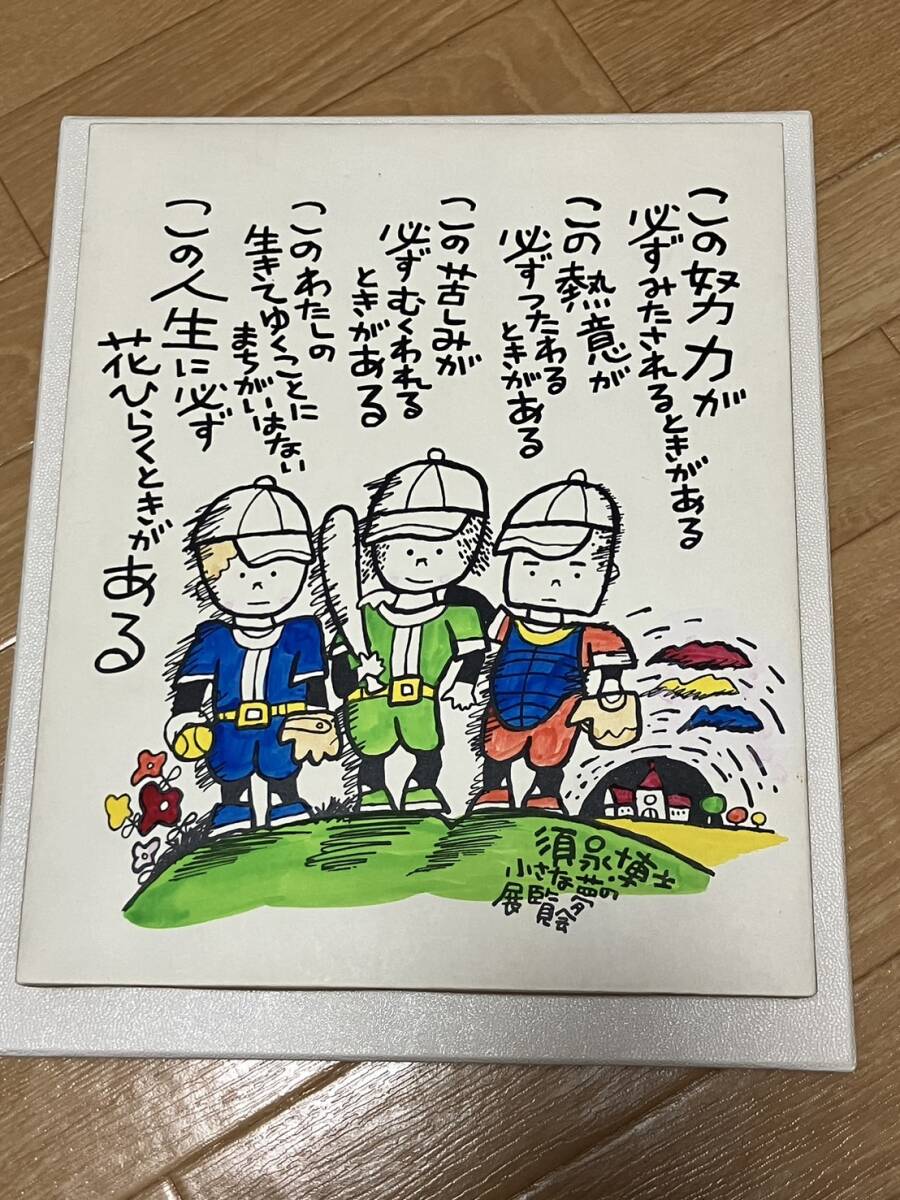 この努力が
必ずみたされるときがある
この熱意が
必ずつたわる
ときがある
この苦しみが
必ずむくわれる
ときがある
このわたしの
生きてゆくことに
まちがいはない
この人生に必ず
花ひらくときが
ある
須永博士
小さな夢の
展覧会